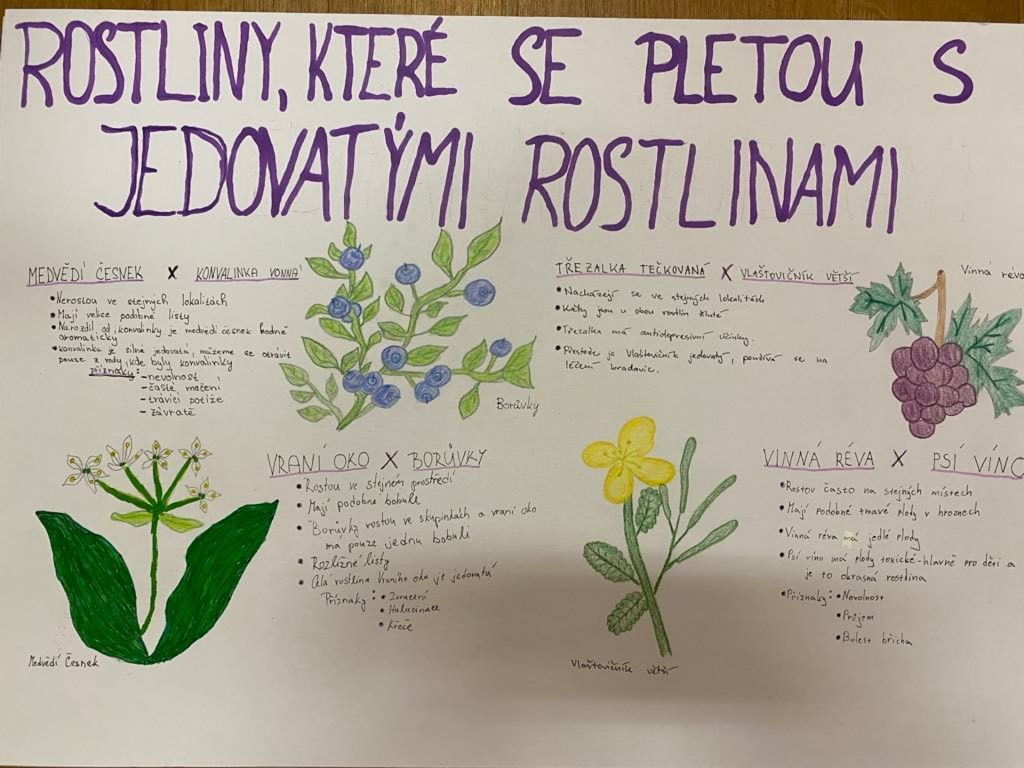 ROSTLINY, KTERÉ SE PLETOU S
JEDOVATÝMI ROSTLINAMI
MEDVĚDÍ ČESNEK X KONVALINKA VONNÁ
• Nerostou ve stejných lokalitách
• Mají velice podobné listy
• Narozdíl od konvalinky je medvědí česnek hodně
aromatický
• konvalinka je silně jedovatá, můžeme se otrávit
pouze z vody, kde byly konvalinky
příznaky: - nevolnost
- časté močení
- trávicí potíže
- závratě
Borůvky
TŘEZALKA TEČKOVANÁ X VLAŠTOVIČNÍK VĚTŠÍ
• Nacházejí se ve stejných lokalitách
• Květy jsou u obou rostlin žluté
• Třezalka má antidepresivní účinky.
• Přestože je Vlaštovičník jedovatý, používá se na
léčení bradavic.
Vinná réva
Medvědí Česnek
VRANÍ OKO X BORŮVKY
• Rostou ve stejném prostředí
• Mají podobné bobule
• Borůvky rostou ve skupinkách a vraní oko
má pouze jednu bobuli
• Rozličné listy
• Celá rostlina Vraního oka je jedovatá
Příznaky: • Zvracení
• Halucinace
• Křeče
Vlaštovičník větší
VINNÁ RÉVA X PSÍ VÍNO
• Rostou často na stejných místech
• Mají podobné tmavé plody v hroznech
• Vinná réva má jedlé plody
• Psí víno má plody toxické - hlavně pro děti a
je to okrasná rostlina
• Příznaky: • Nevolnost
• Průjem
• Bolest břicha